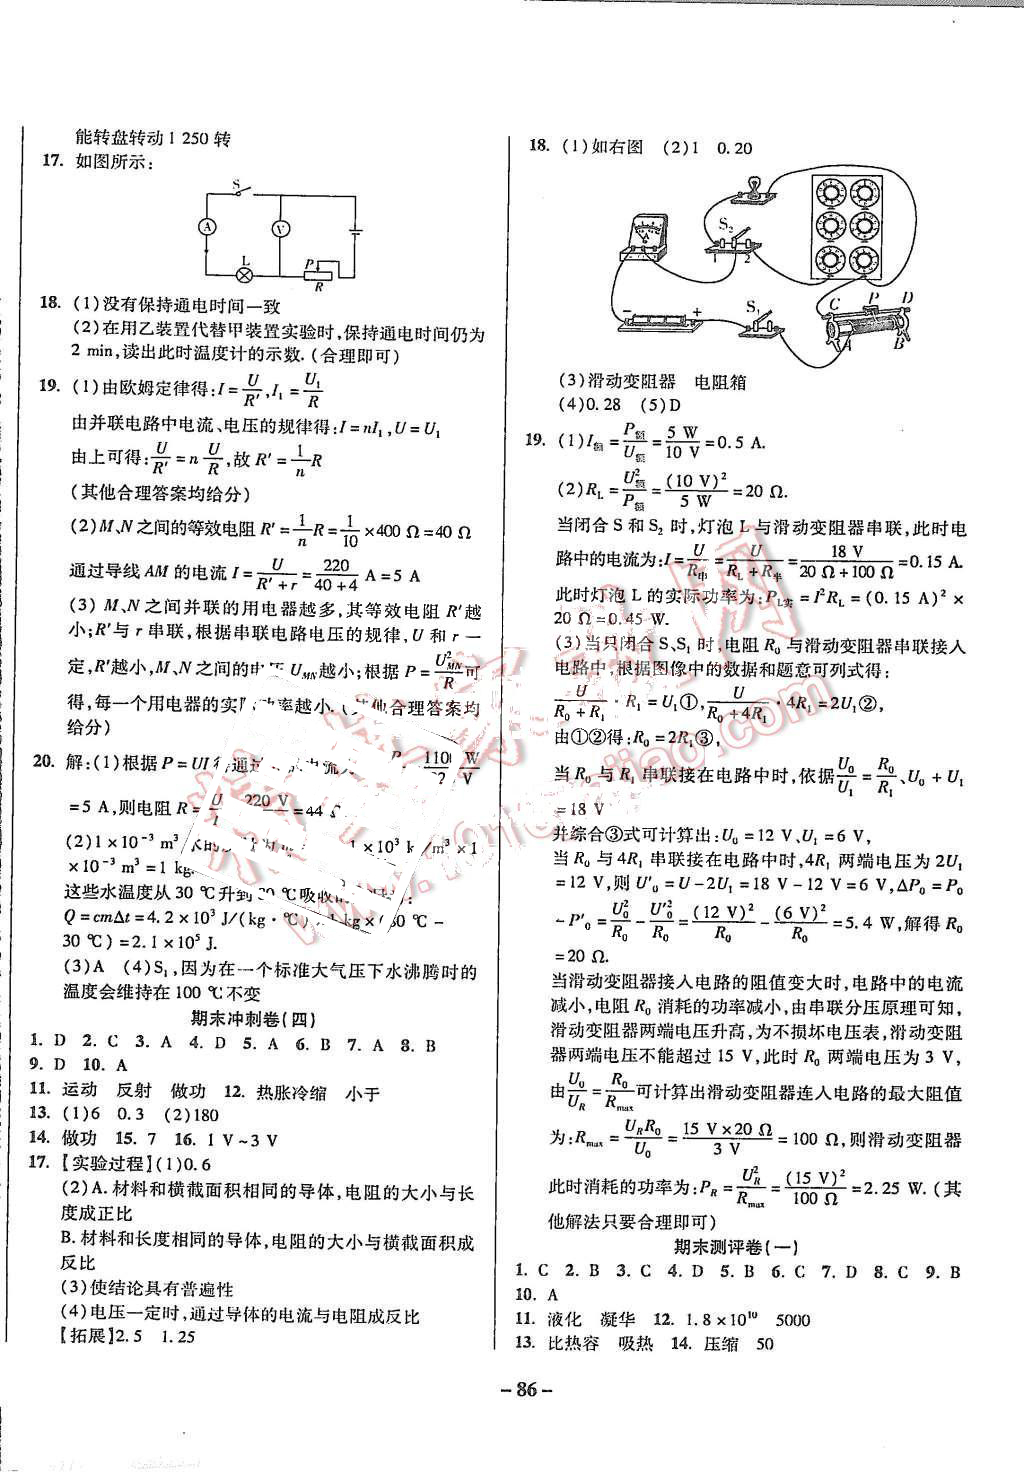 能转盘转动1 250转
17. 如图所示:
S
A
V
L
P
R
18. (1)没有保持通电时间一致
(2)在用乙装置代替甲装置实验时,保持通电时间仍为
2 min,读出此时温度计的示数.(合理即可)
19. (1)由欧姆定律得:I=U/R′,I₁=U₁/R
由并联电路中电流、电压的规律得:I=nI₁,U=U₁
由上可得:U/R′=n U/R,故R′=1/n R
(其他合理答案均给分)
(2)M、N之间的等效电阻R′=1/n R=1/10×400 Ω=40 Ω
通过导线AM的电流I=U/(R′+r)=220/(40+4) A=5 A
(3) M、N之间并联的用电器越多,其等效电阻R′越
小;R′与r串联,根据串联电路电压的规律,U和r一
定,R′越小,M、N之间的电压U_MN越小;根据P=U²_MN/R可
得,每一个用电器的实际功率越小.(其他合理答案均
给分)
20. 解:(1)根据P=UI得通过 I=P/U=1100 W/220 V
=5 A,则电阻R=U/I=220 V/5 A=44 Ω
(2)1×10⁻³ m³水的质量 1×10³ kg/m³×1
×10⁻³ m³=1 kg.
这些水温度从30 ℃升到80 ℃吸收的热量:
Q=cmΔt=4.2×10³ J/(kg·℃)×1 kg×(80 ℃-
30 ℃)=2.1×10⁵ J.
(3)A (4)S₁,因为在一个标准大气压下水沸腾时的
温度会维持在100 ℃不变
期末冲刺卷(四)
1. D 2. C 3. A 4. D 5. A 6. B 7. A 8. B
9. D 10. A
11. 运动 反射 做功 12. 热胀冷缩 小于
13. (1)6 0.3 (2)180
14. 做功 15. 7 16. 1 V~3 V
17. 【实验过程】(1)0.6
(2)A. 材料和横截面积相同的导体,电阻的大小与长
度成正比
B. 材料和长度相同的导体,电阻的大小与横截面积成
反比
(3)使结论具有普遍性
(4)电压一定时,通过导体的电流与电阻成反比
【拓展】2.5 1.25
18. (1)如右图 (2)1 0.20
A
S₂
1 2
- +
S₁
C P D
A B
(3)滑动变阻器 电阻箱
(4)0.28 (5)D
19. (1)I额=P额/U额=5 W/10 V=0.5 A.
(2)R_L=U²额/P额=(10 V)²/5 W=20 Ω.
当闭合S和S₂时,灯泡L与滑动变阻器串联,此时电
路中的电流为:I=U/R串=U/(R_L+R半)=18 V/(20 Ω+100 Ω)=0.15 A.
此时灯泡L的实际功率为:P_L实=I²R_L=(0.15 A)²×
20 Ω=0.45 W.
(3)当只闭合S、S₁时,电阻R₀与滑动变阻器串联接入
电路中,根据图像中的数据和题意可列式得:
U/(R₀+R₁)·R₁=U₁①,U/(R₀+4R₁)·4R₁=2U₁②,
由①②得:R₀=2R₁③,
当R₀与R₁串联接在电路中时,依据U₀/U₁=R₀/R₁、U₀+U₁
=18 V
并综合③式可计算出:U₀=12 V、U₁=6 V,
当R₀与4R₁串联接在电路中时,4R₁两端电压为2U₁
=12 V,则U′₀=U-2U₁=18 V-12 V=6 V,ΔP₀=P₀
-P′₀=U₀²/R₀-U′₀²/R₀=(12 V)²/R₀-(6 V)²/R₀=5.4 W,解得R₀
=20 Ω.
当滑动变阻器接入电路的阻值变大时,电路中的电流
减小,电阻R₀消耗的功率减小,由串联分压原理可知,
滑动变阻器两端电压升高,为不损坏电压表,滑动变阻
器两端电压不能超过15 V,此时R₀两端电压为3 V,
由U₀/U_R=R₀/R_max可计算出滑动变阻器连入电路的最大阻值
为:R_max=U_R R₀/U₀=15 V×20 Ω/3 V=100 Ω,则滑动变阻器
此时消耗的功率为:P_R=U²_R/R_max=(15 V)²/100 Ω=2.25 W.(其
他解法只要合理即可)
期末测评卷(一)
1. C 2. B 3. C 4. D 5. B 6. C 7. D 8. C 9. B
10. A
11. 液化 凝华 12. 1.8×10¹⁰ 5000
13. 比热容 吸热 14. 压缩 50
- 86 -